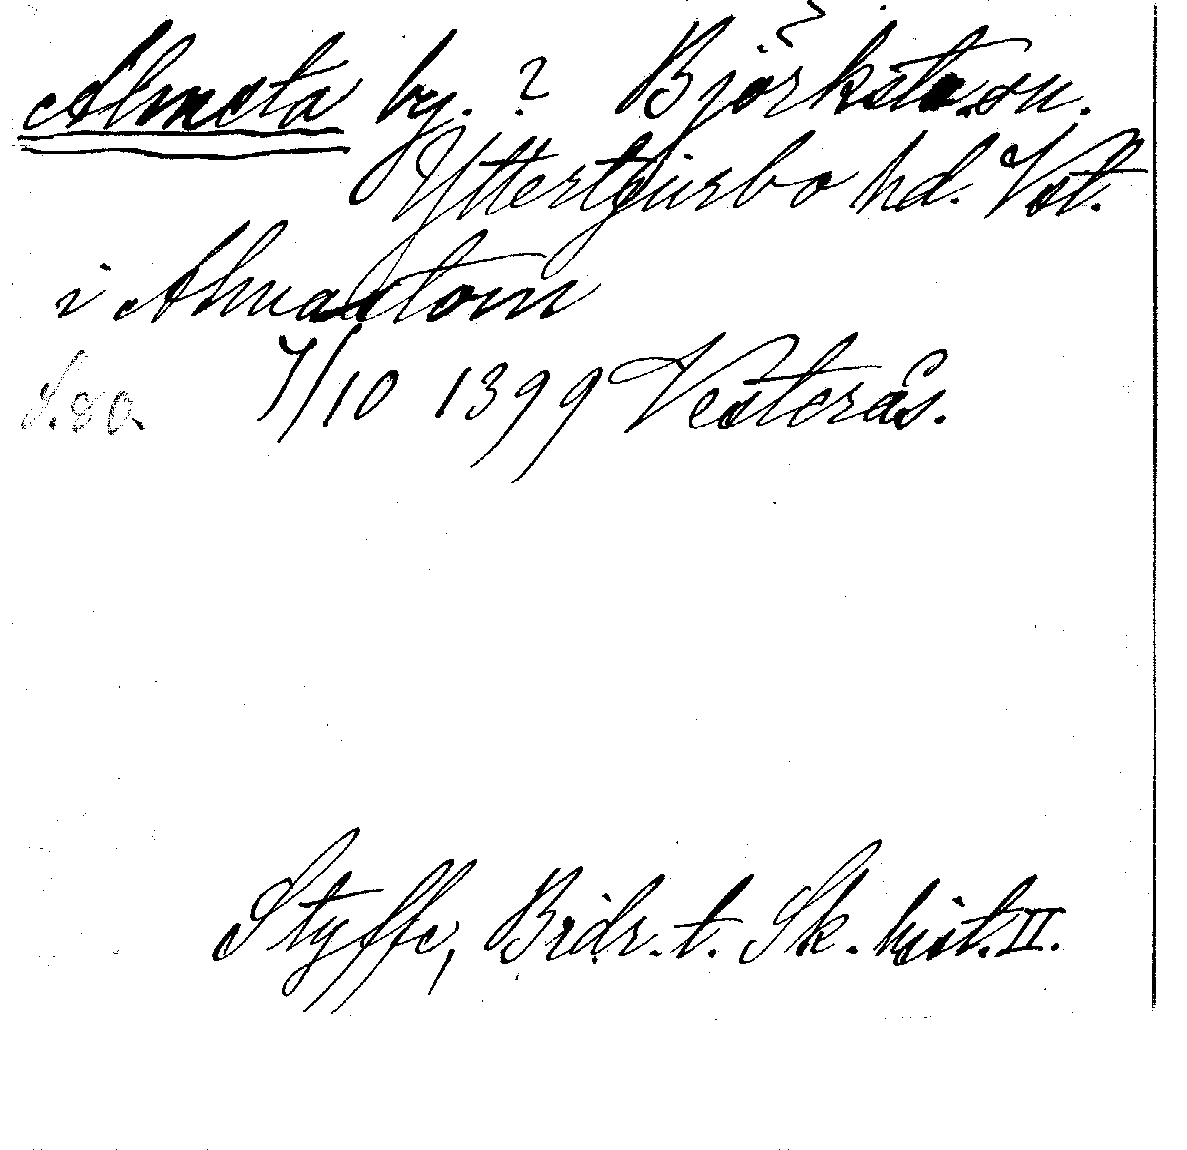 Almsta by. ? Björksta sn.
Yttertjurbo hd. Vst.
i Almastom
S. 80. 7/10 1399 Vesterås.
Styffe, Bidr. t. Sk. hist. II.